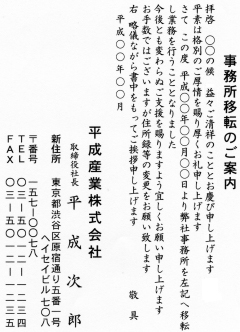 事務所移転のご案内
拝啓　〇〇の候　益々ご清祥のこととお慶び申し上げます
平素は格別のご厚情を賜り厚くお礼申し上げます
さて この度 平成〇〇年〇〇月〇〇日より弊社事務所を左記へ移転
し業務を行うこととなりました
今後とも変わらぬご支援を賜りますよう宜しくお願い申し上げます
お手数ではございますが住所録等の変更をお願い致します
右 略儀ながら書中をもってご挨拶申し上げます
敬具
平成〇〇年〇〇月
平成産業株式会社
取締役社長　平成次郎
新住所　東京都渋谷区原宿通り五番一号
ヘイセイビル七〇八
〒番号　一五七-〇〇七八
ＴＥＬ　〇三-五〇一二-一二三四
ＦＡＸ　〇三-五〇一二-一二三五